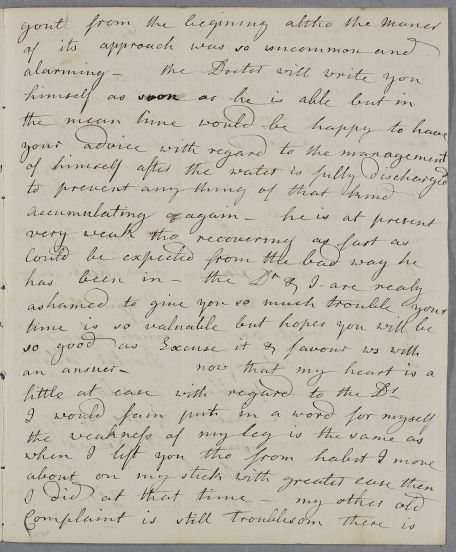 gout from the begining altho the maner
of its approach was so uncommon and
alarming - the Doctor will write you
himself as soon as he is able but in
the mean time would be happy to have
your advice with regard to the management
of himself after the water is fully discharged
to prevent any thing of that kind
accumulating again - he is at present
very weak tho recovering as fast as
Could be expected from the bad way he
has been in - the Dr & I are realy
ashamed to give you so much trouble your
time is so valuable but hopes you will be
so good as Excuse it & favour us with
an answer - now that my heart is a
little at ease with regard to the Dr
I would fain put in a word for myself
the weakness of my leg is the same as
when I left you tho from habit I move
about on my stick with greater ease then
I did at that time - my other old
Complaint is still troublesom there is